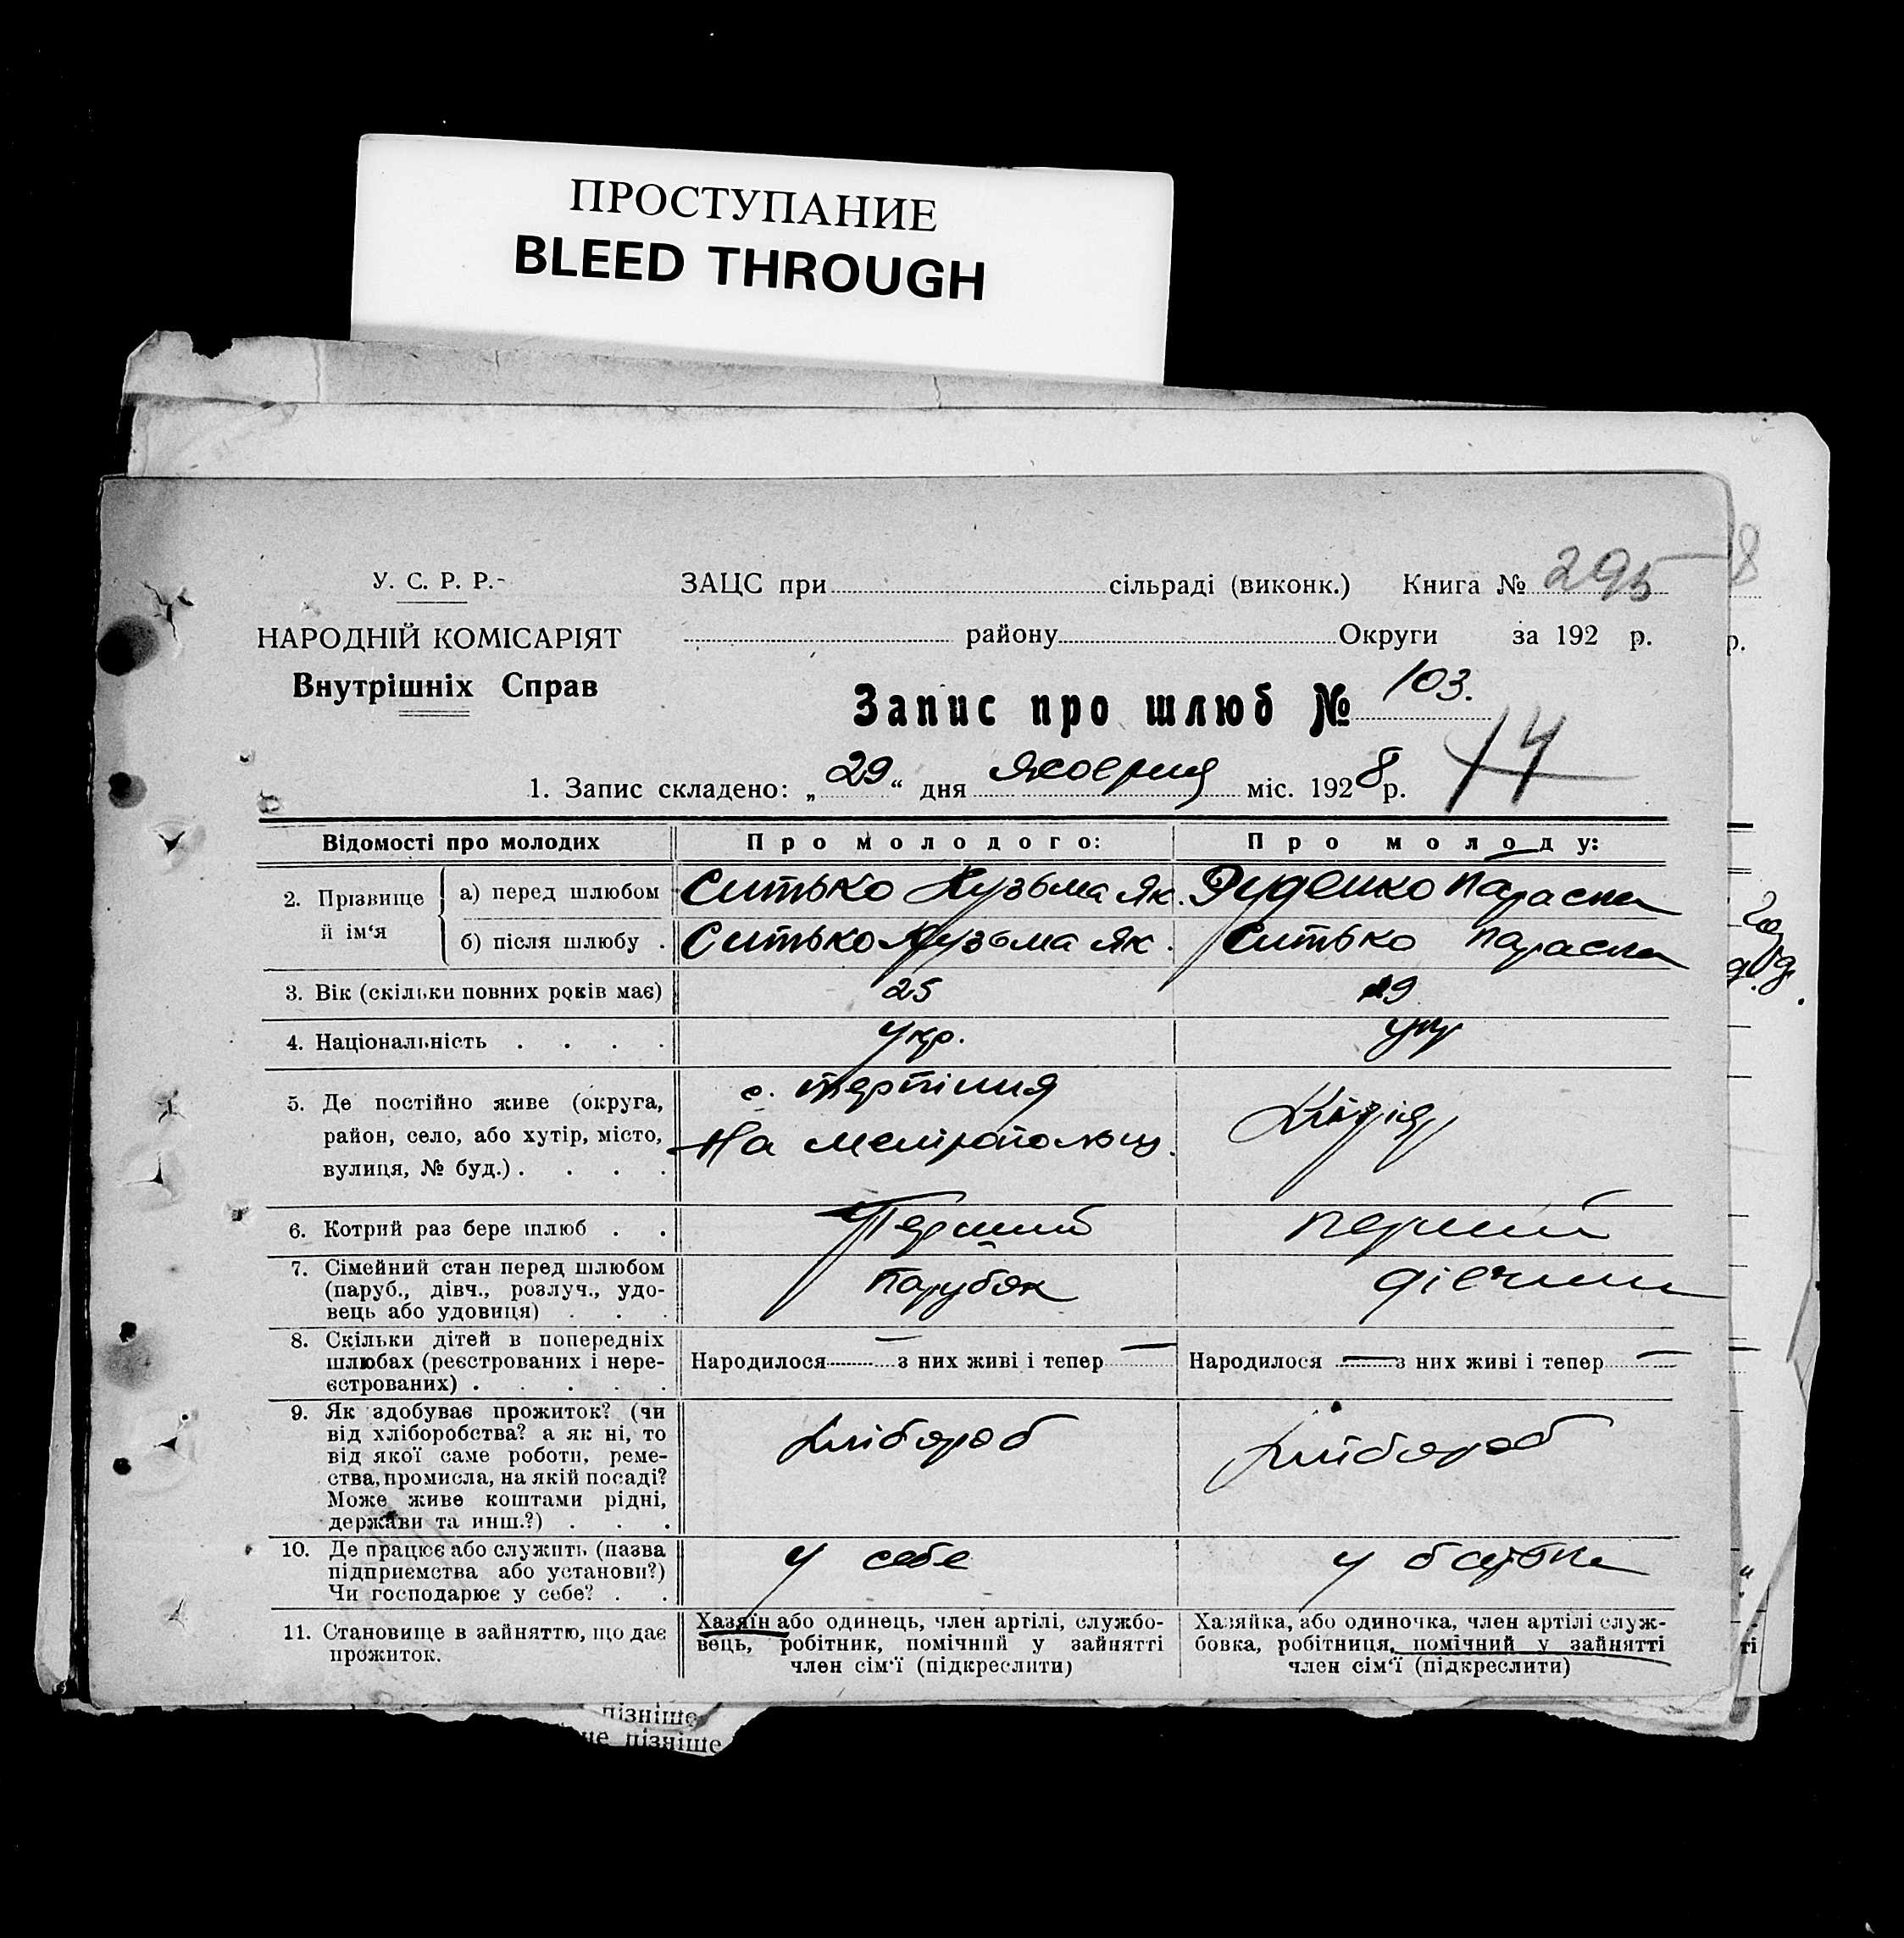 ПРОСТУПАНИЕ
BLEED THROUGH
У. С. Р. Р.
НАРОДНІЙ КОМІСАРІЯТ
Внутрішніх Справ
ЗАЦС при сільраді (виконк.) Книга № 295
району Округи за 192 р.
Запис про шлюб № 103.
14
1. Запис складено: „29“ дня міс. 1928 р.
Відомості про молодих
Про молодого:
Про молоду:
2. Прізвище й ім'я
а) перед шлюбом
Ситько Кузьма Як.
Руденко Параска
б) після шлюбу .
Ситько Кузьма Як.
Ситько Параска
3. Вік (скільки повних років має)
25
19
4. Національність . . . .
Укр.
укр
5. Де постійно живе (округа,
район, село, або хутір, місто,
вулиця, № буд.) . . . .
с. Терпіния
На
6. Котрий раз бере шлюб . .
Перший
перший
7. Сімейний стан перед шлюбом
(паруб., дівч., розлуч., удо-
вець або удовиця) . . .
Парубок
дівчина
8. Скільки дітей в попередніх
шлюбах (реєстрованих і нере-
єстрованих) . . . . .
Народилося — з них живі і тепер —
Народилося — з них живі і тепер —
9. Як здобуває прожиток? (чи
від хліборобства? а як ні, то
від якої саме роботи, реме-
ства, промисла, на якій посаді?
Може живе коштами рідні,
держави та инш.?) . . .
хлібороб
хлібороб
10. Де працює або служить (назва
підприємства або установи?)
Чи господарює у себе? . .
у себе
у батька
11. Становище в зайняттю, що дає
прожиток.
Хазяїн або одинець, член артілі, службо-
вець, робітник, помічний у зайнятті
член сім'ї (підкреслити)
Хазяйка, або одиночка, член артілі служ-
бовка, робітниця, помічний у зайнятті
член сім'ї (підкреслити)
пізніше
не пізніше